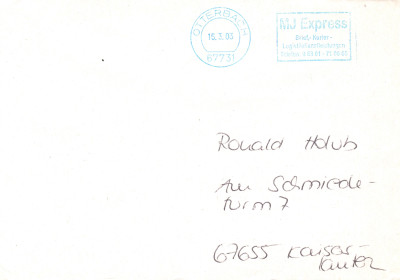 OTTERBACH
15.3.03
67731
MJ Express
Brief-, Kurier-
Logistikdienstleistungen
Ronald Holub
Am Schmiede-
turm 7
67655 Kaisers-
lautern